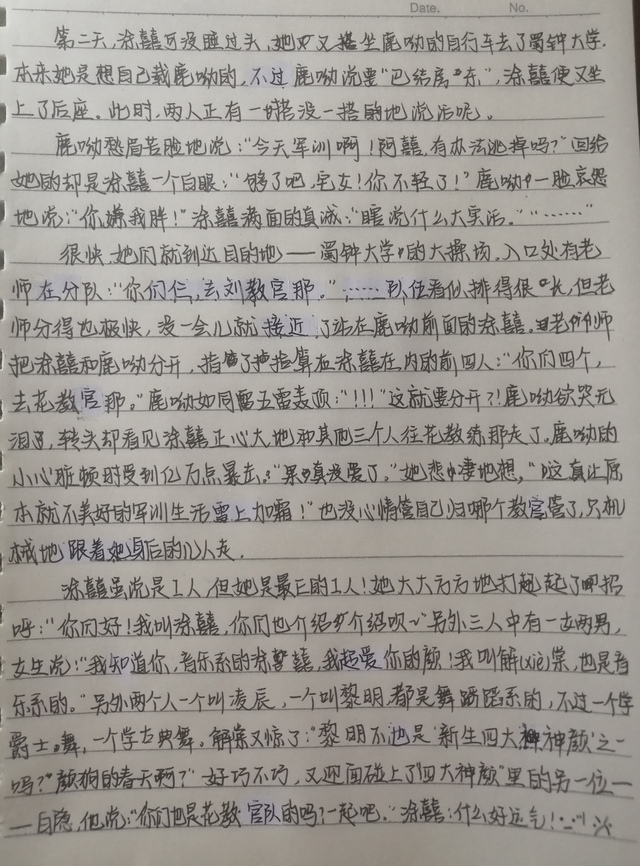 Date.    No.
第二天,涂囍可没睡过头,她又搭坐鹿呦的自行车去了蜀钟大学.
本来她是想自己载鹿呦的,不过鹿呦说要“巴结房东”,涂囍便又坐
上了后座。此时,两人正有一搭没一搭的地说话呢。
鹿呦愁眉苦脸地说:“今天军训啊!阿囍,有办法逃掉吗?”回给
她的却是涂囍一个白眼:“够了吧,宅女!你不轻了!”鹿呦一脸哀怨
地说:“你嫌我胖!”涂囍满面的真诚:“瞎说什么大实话。”“……”
很快,她们就到达目的地——蜀钟大学的大操场。入口处有老
师在分队:“你们仨,去刘教官那。”……队伍看似排得很长,但老
师分得也极快,没一会儿就接近了站在鹿呦前面的涂囍。老师
把涂囍和鹿呦分开,指了指算在涂囍在内的前四人:“你们四个,
去花教官那。”鹿呦如同雷五雷轰顶:“!!!”这就要分开?!鹿呦欲哭无
泪了,转头却看见涂囍正心大地和其他三个人往花教练那去了。鹿呦的
小心脏顿时受到亿万点暴击。“果真没爱了,”她悲凄地想,“这真让原
本就不美好的军训生活雪上加霜!”也没心情管自己归哪个教官管了,只机
械地跟着她身后的几人走.
涂囍虽说是工人,但她是最正的工人!她大大方方地打起了招
呼:“你们好!我叫涂囍,你们也介绍介绍呗~”另外三人中有一女两男,
女生说:“我知道你,音乐系的涂囍,我超爱你的颜!我叫解(xiè)棠,也是音
乐系的。”另外两个人一个叫凌辰,一个叫黎明,都是舞蹈系的,不过一个学
爵士舞,一个学古典舞。解棠又惊了:“黎明不也是‘新生四大神颜’之一
吗?”颜狗的春天啊?”好巧不巧,又迎面碰上了“四大神颜”里的另一位—
—白隐,他说:“你们也是花教官队的吗?一起吧。”涂囍:什么好运气!